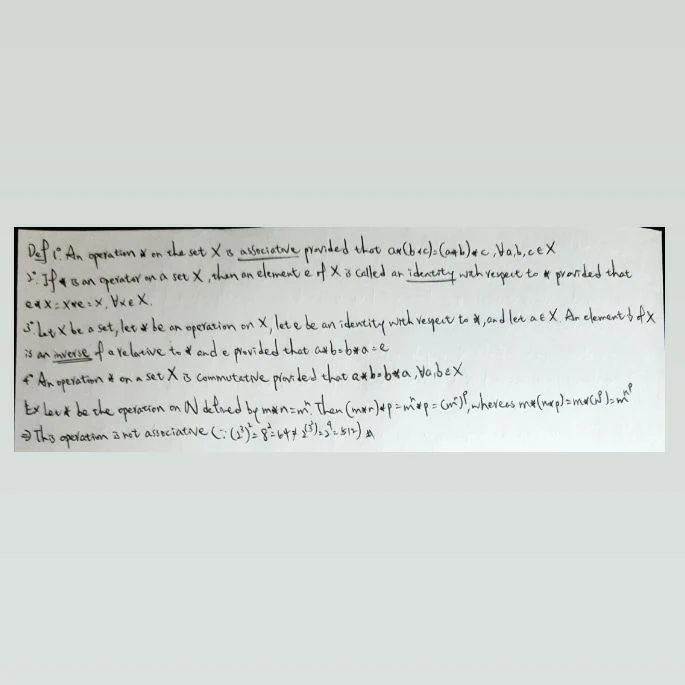 Def 1° An operation * on the set X is associative provided that a*(b*c)=(a*b)*c, ∀a,b,c∈X
2° If * is an operator on a set X, then an element e of X is called an identity with respect to * provided that
e*x=x*e=x, ∀x∈X.
3° Let X be a set, let * be an operation on X, let e be an identity with respect to *, and let a∈X. An element b of X
is an inverse of a relative to * and e provided that a*b=b*a=e
4° An operation * on a set X is commutative provided that a*b=b*a, ∀a,b∈X
Ex Let * be the operation on ℕ defined by m*n=mⁿ. Then (m*n)*p=mⁿ*p=(mⁿ)ᵖ, whereas m*(n*p)=m*(nᵖ)=m^(nᵖ)
⇒ This operation is not associative (∵ (2³)²=8²=64≠2^(3²)=2⁹=512)